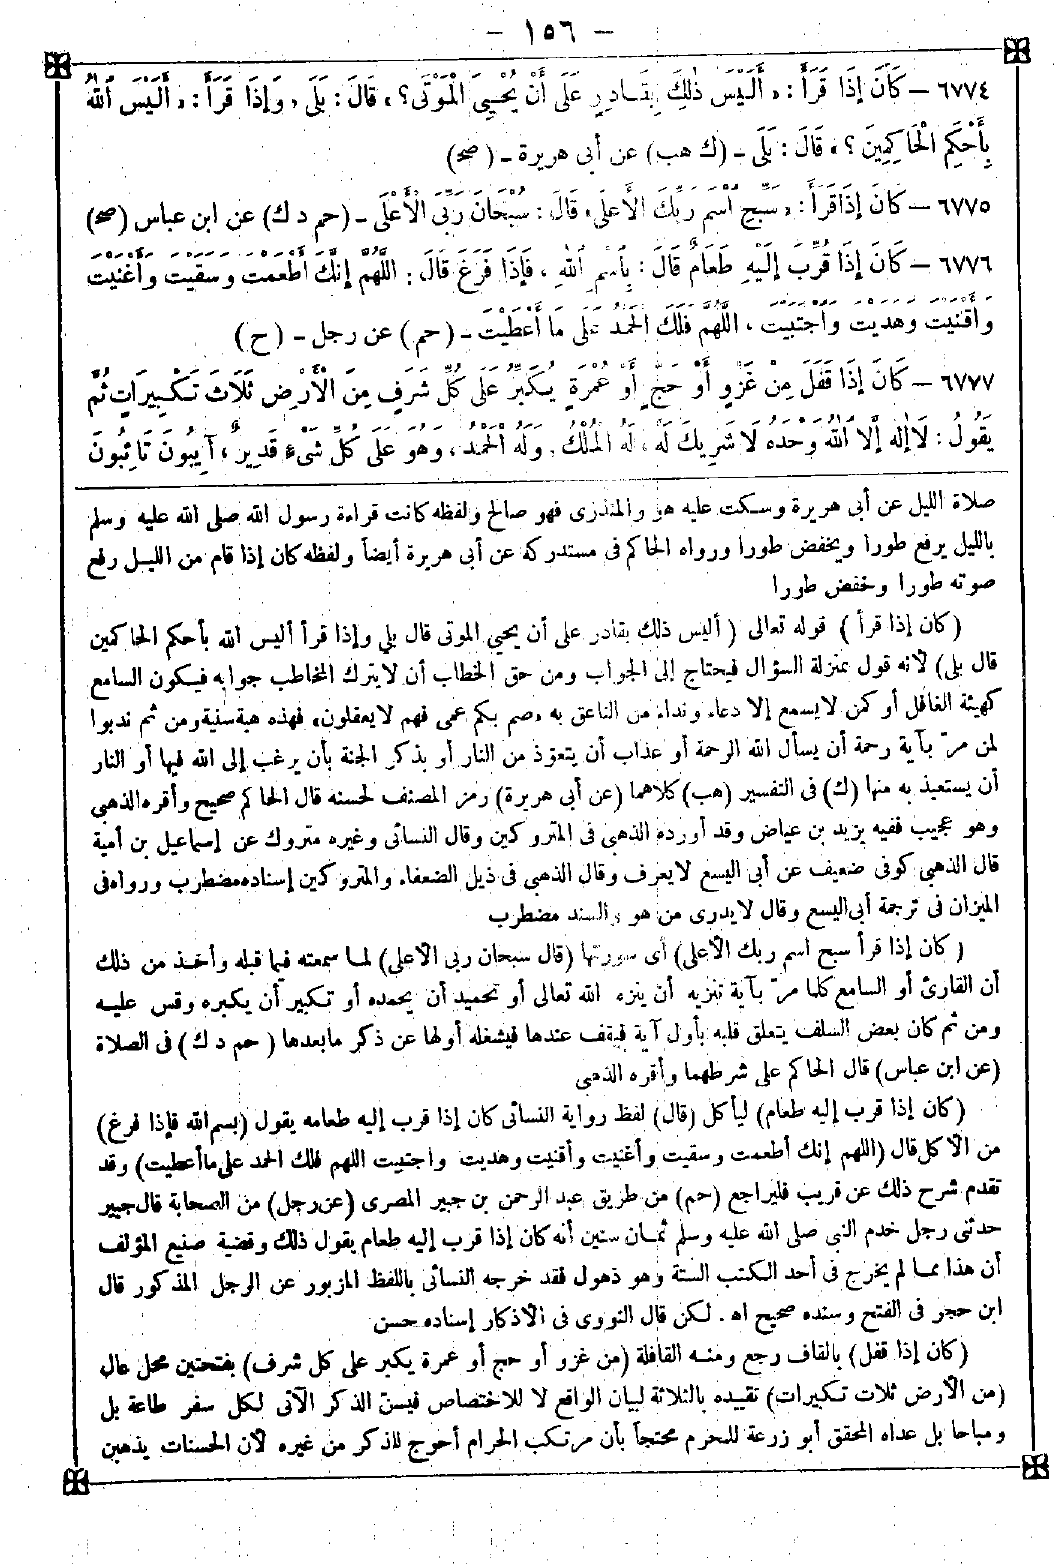 - ١٥٦ -
٦٧٧٤ - كَانَ إِذَا قَرَأَ : « أَلَيْسَ ذٰلِكَ بِقَـادِرٍ عَلَى أَنْ يُحْيِيَ الْمَوْتَى؟ » قَالَ : بَلَى ، وَإِذَا قَرَأَ : « أَلَيْسَ اللّٰهُ
بِأَحْكَمِ الْحَاكِمِينَ ؟ » قَالَ : بَلَى - (ك هب) عن أبي هريرة - (صح)
٦٧٧٥ - كَانَ إِذَا قَرَأَ : « سَبِّحِ اسْمَ رَبِّكَ الْأَعْلَى » قَالَ : سُبْحَانَ رَبِّيَ الْأَعْلَى - (حم د ك) عن ابن عباس (صح)
٦٧٧٦ - كَانَ إِذَا قُرِّبَ إِلَيْهِ طَعَامٌ قَالَ : بِاسْمِ اللّٰهِ ، فَإِذَا فَرَغَ قَالَ : اللَّهُمَّ إِنَّكَ أَطْعَمْتَ وَسَقَيْتَ وَأَغْنَيْتَ
وَأَقْنَيْتَ وَهَدَيْتَ وَاجْتَبَيْتَ ، اللَّهُمَّ فَلَكَ الْحَمْدُ عَلَى مَا أَعْطَيْتَ - (حم) عن رجل - (ح)
٦٧٧٧ - كَانَ إِذَا قَفَلَ مِنْ غَزْوٍ أَوْ حَجٍّ أَوْ عُمْرَةٍ يُكَبِّرُ عَلَى كُلِّ شَرَفٍ مِنَ الْأَرْضِ ثَلَاثَ تَكْبِيرَاتٍ ثُمَّ
يَقُولُ : لَا إِلٰهَ إِلَّا اللّٰهُ وَحْدَهُ لَا شَرِيكَ لَهُ ، لَهُ الْمُلْكُ ، وَلَهُ الْحَمْدُ ، وَهُوَ عَلَى كُلِّ شَيْءٍ قَدِيرٌ ، آيِبُونَ تَائِبُونَ
صلاة الليل عن أبى هريرة وسكت عليه هو والمنذرى فهو صالح ولفظه كانت قراءة رسول الله صلى الله عليه وسلم
بالليل يرفع طورا ويخفض طورا ورواه الحاكم فى مستدركه عن أبى هريرة أيضا ولفظه كان إذا قام من الليل رفع
صوته طورا وخفض طورا
(كان إذا قرأ) قوله تعالى (أليس ذلك بقادر على أن يحيى الموتى قال بلى وإذا قرأ أليس الله بأحكم الحاكمين
قال بلى) لأنه قول بمنزلة السؤال فيحتاج إلى الجواب ومن حق الخطاب أن لا يترك المخاطب جوابه فيكون السامع
كهيئة الغافل أو كمن لا يسمع إلا دعاء ونداء من الناعق به «صم بكم عمى فهم لا يعقلون» فهذه هبة سنية ومن ثم ندبوا
لمن مرّ بآية رحمة أن يسأل الله الرحمة أو عذاب أن يتعوّذ من النار أو بذكر الجنة بأن يرغب إلى الله فيها أو النار
أن يستعيذ به منها (ك) فى التفسير (هب) كلاهما (عن أبى هريرة) رمز المصنف لحسنه قال الحاكم صحيح وأقره الذهبى
وهو عجيب ففيه يزيد بن عياض وقد أورده الذهبى فى المتروكين وقال النسائى وغيره متروك عن إسماعيل بن أمية
قال الذهبى كوفى ضعيف عن أبى اليسع لا يعرف وقال الذهبى فى ذيل الضعفاء والمتروكين إسناده مضطرب ورواه فى
الميزان فى ترجمة أبى اليسع وقال لا يدرى من هو والسند مضطرب
(كان إذا قرأ سبح اسم ربك الأعلى) أى سورتها (قال سبحان ربى الأعلى) لما سمعته فيما قبله وأخذ من ذلك
أن القارئ أو السامع كلما مرّ بآية تنزيه أن ينزه الله تعالى أو تحميد أن يحمده أو تكبير أن يكبره وقس عليه
ومن ثم كان بعض السلف يتعلق قلبه بأول آية فيقف عندها فيشغله أولها عن ذكر ما بعدها (حم د ك) فى الصلاة
(عن ابن عباس) قال الحاكم على شرطهما وأقره الذهبى
(كان إذا قرب إليه طعام) ليأكل (قال) لفظ رواية النسائى كان إذا قرب إليه طعامه يقول (بسم الله فإذا فرغ)
من الأكل قال (اللهم إنك أطعمت وسقيت وأغنيت وأقنيت وهديت واجتبيت اللهم فلك الحمد على ما أعطيت) وقد
تقدم شرح ذلك عن قريب فليراجع (حم) من طريق عبد الرحمن بن جبير المصرى (عن رجل) من الصحابة قال جبير
حدثنى رجل خدم النبى صلى الله عليه وسلم ثمان سنين أنه كان إذا قرب إليه طعام يقول ذلك وقضية صنيع المؤلف
أن هذا مما لم يخرج فى أحد الكتب الستة وهو ذهول فقد خرجه النسائى باللفظ المزبور عن الرجل المذكور قال
ابن حجر فى الفتح وسنده صحيح اه . لكن قال النووى فى الأذكار إسناده حسن
(كان إذا قفل) بالقاف رجع ومنه القافلة (من غزو أو حج أو عمرة يكبر على كل شرف) بفتحتين محل عال
(من الأرض ثلاث تكبيرات) تقييده بالثلاثة لبيان الواقع لا للاختصاص فيسنّ الذكر الآتى لكل سفر طاعة بل
ومباحا بل عداه المحقق أبو زرعة للمحرم محتجاً بأن مرتكب الحرام أحوج للذكر من غيره لأن الحسنات يذهبن